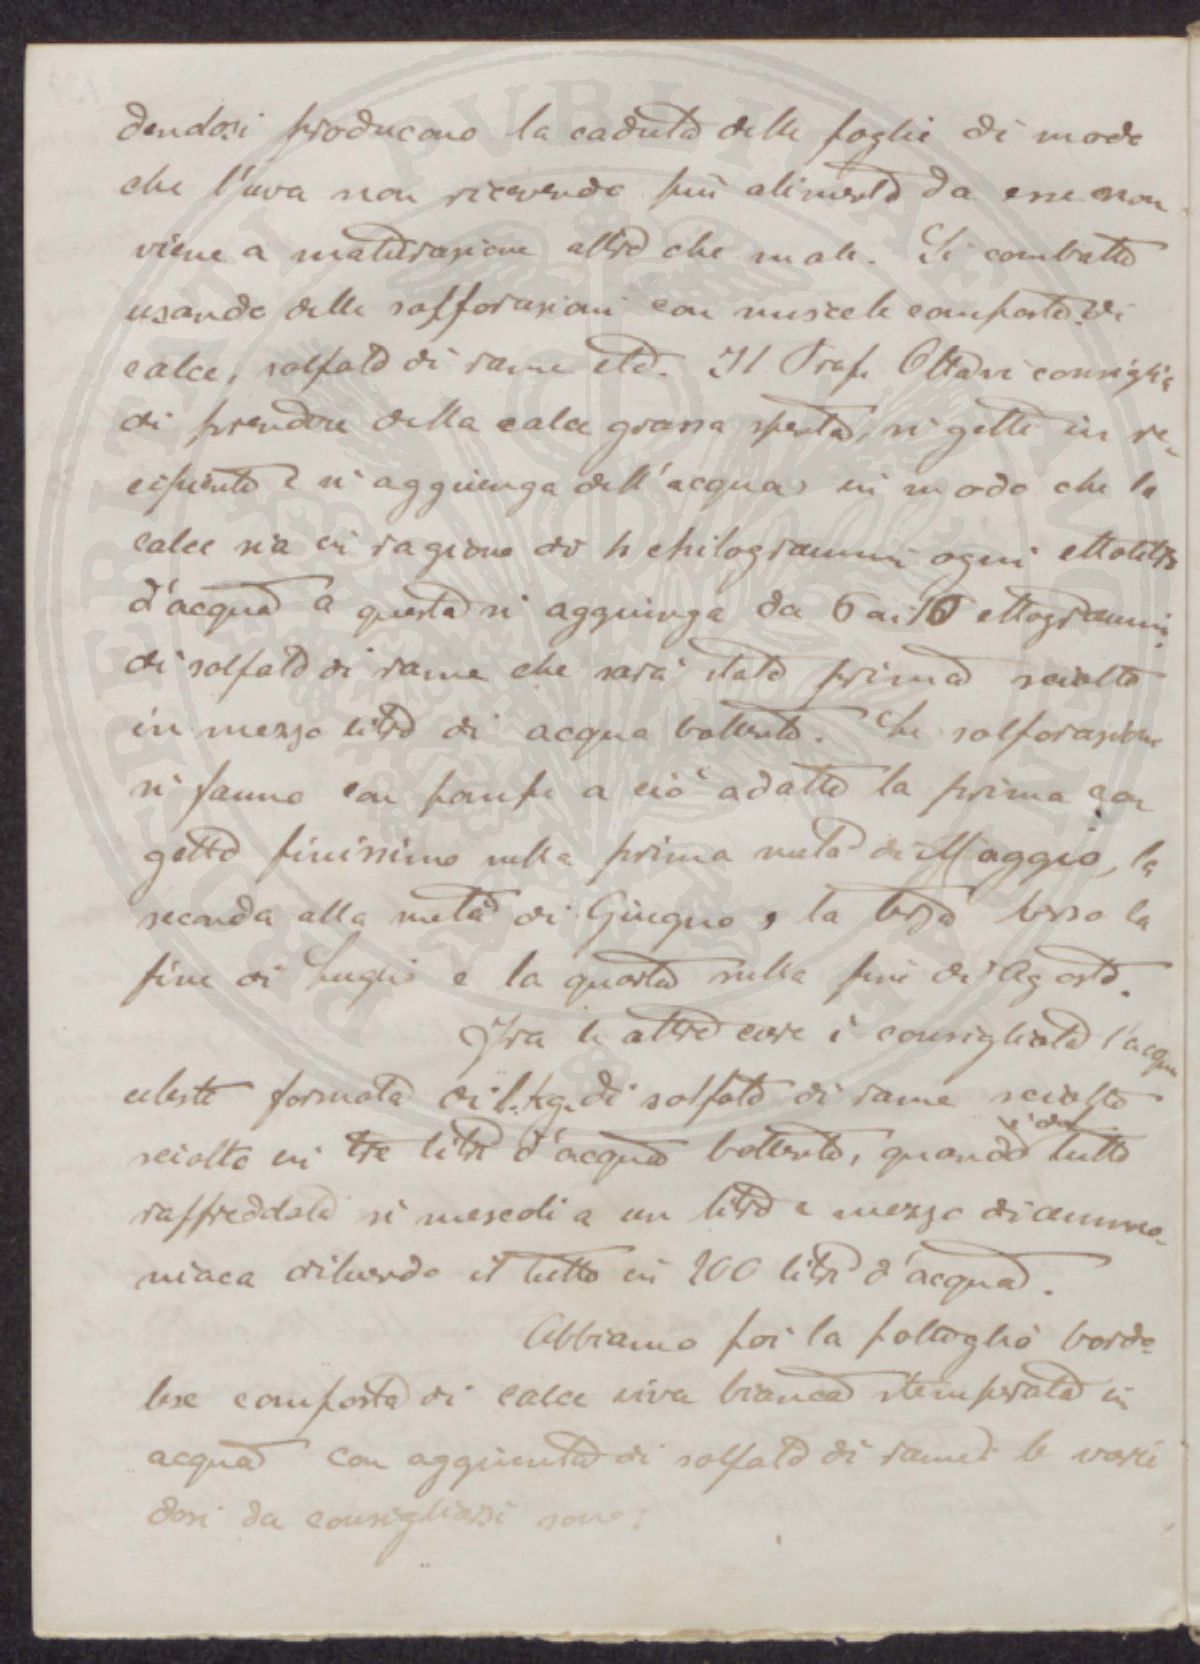 dendosi producono la caduta delle foglie di modo
che l'uva non ricevendo più alimento da esse non
viene a maturazione altro che male. Si combatte
usando delle solforazioni con miscele composte di
calce, solfato di rame etc. Il Prof. Ottavi consiglia
di prendere della calce grassa spenta, si getti in re-
cipiente e si aggiunga dell'acqua in modo che la
calce sia in ragione di chilogrammi ogni ettolitro
d'acqua a questa si aggiunga da 6 ai 10 ettogrammi
di solfato di rame che sarà stato prima sciolto
in mezzo litro di acqua bollente. Le solforazioni
si fanno con pompe a ciò adatte la prima con
getto finissimo nella prima metà di Maggio, la
seconda alla metà di Giugno, la terza verso la
fine di Luglio e la quarta sulla fine di Agosto.
Fra le altre cure è consigliata l'acqua
celeste formata di 1. Kg. di solfato di rame sciolto
sciolto in tre litri d'acqua bollente, quando si è tutto
raffreddato si mescoli a un litro e mezzo di ammo-
niaca diluendo il tutto in 200 litri d'acqua.
Abbiamo poi la poltiglia borda-
lese composta di calce viva bianca stemperata in
acqua con aggiunta di solfato di rame: le varie
dosi da consigliarsi sono:
PERITI PVBLICAE